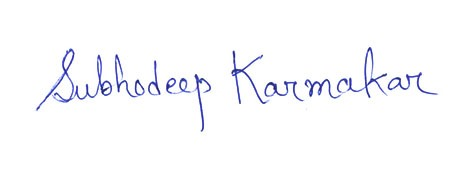 Subhodeep Karmakar